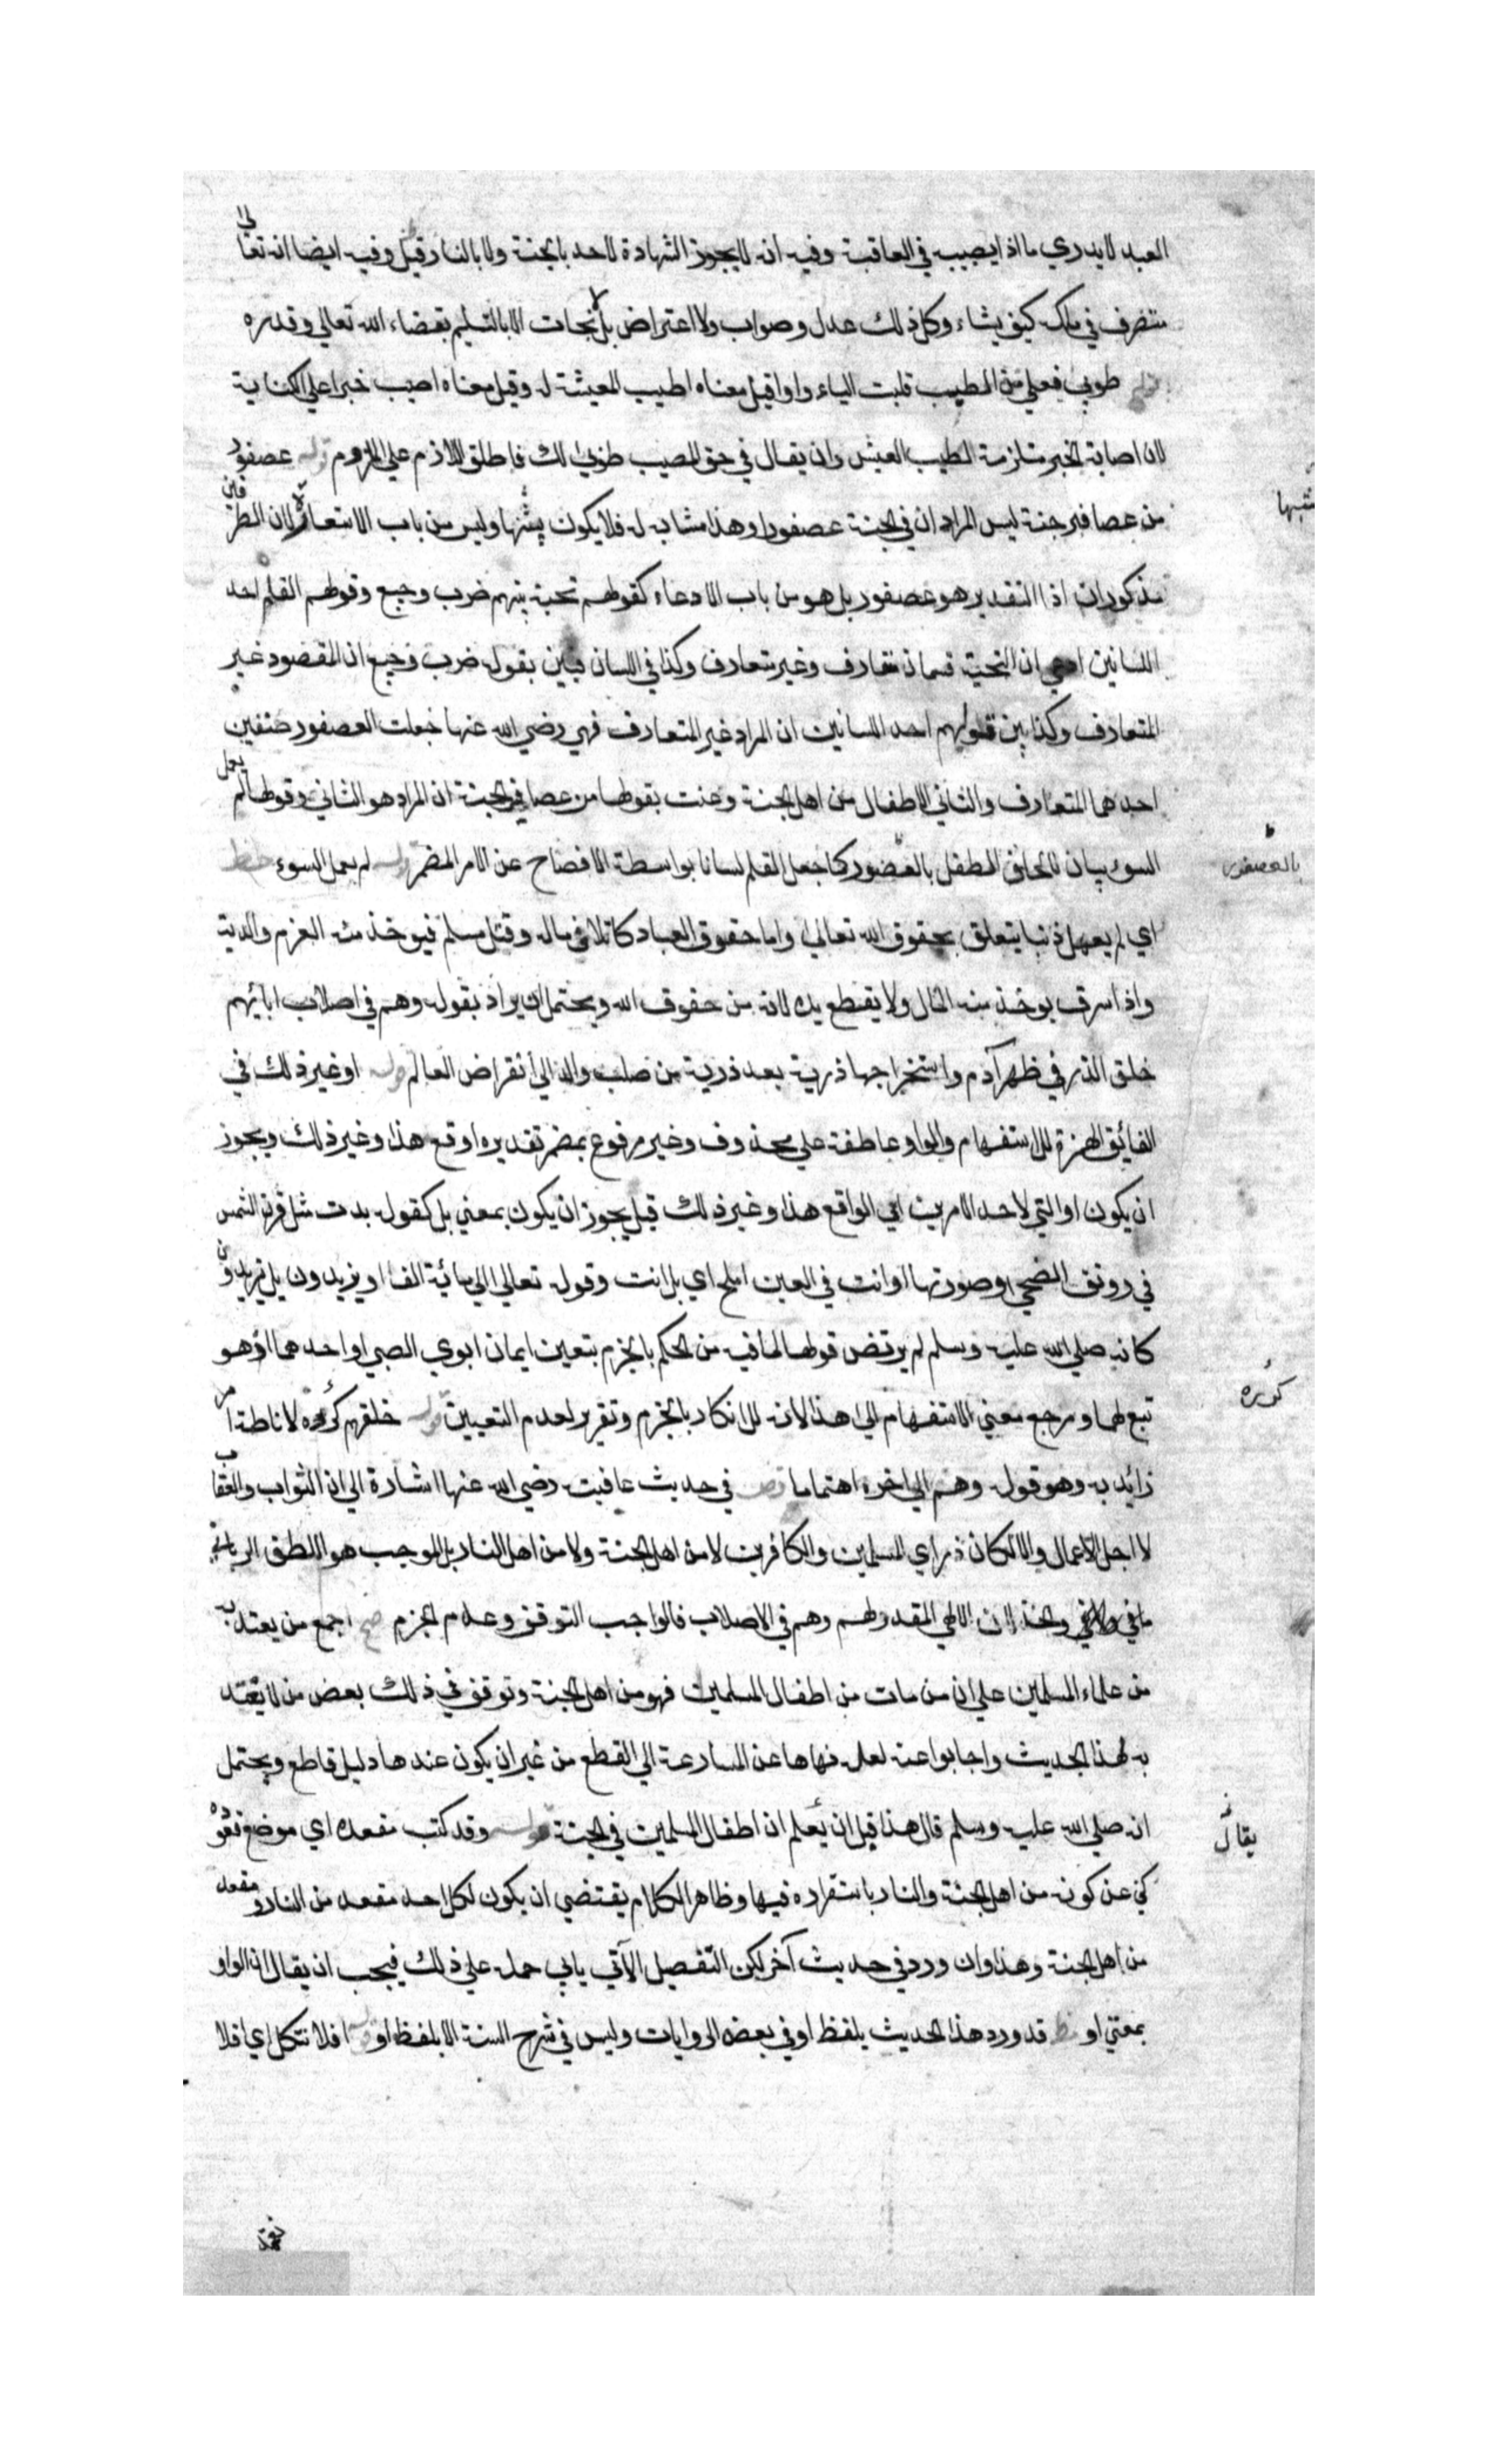 العبد لا يدري ماذا يصيبه في العاقبة وفيه انه لا يجوز الشهادة لاحد بالجنة ولا بالنار قيل وفيه ايضا انه تعالى
متصرف في ملكه كيف يشاء وكل ذلك عدل وصواب ولا اعتراض بل لا نجات الا بالتسليم بقضاء الله تعالي وقدره
طوبي فعلي من الطيب قلبت الياء واوا قيل معناه اطيب المعيشة له وقيل معناه اصيب خيرا علي الكناية
لان اصابة الخير مستلزمة لطيب العيش وان يقال في حق المصيب طوبي لك فاطلق اللازم علي الملزوم قوله عصفور
من عصافير جنة ليس المراد ان في الجنة عصفورا وهذا مشابه له فلا يكون تشبيها وليس من باب الاستعارة لان الطرفين
مذكوران اذ التقدير هو عصفور بل هو من باب الادعاء كقولهم تحية بينهم ضرب وجيع وقولهم القلم احد
اللسانين ادعي ان التحية قسمان متعارف وغير متعارف وكذا في اللسان فبين بقوله ضرب وجيع ان المقصود غير
المتعارف وكذا بين قولهم احد اللسانين ان المراد غير المتعارف فهي رضي الله عنها جعلت العصفور صنفين
احدهما المتعارف والثاني الاطفال من اهل الجنة وعنت بقولها من عصافير الجنة ان المراد هو الثاني وقولها لم يعمل
السوء بيان لالحاق الطفل بالعصفور كما جعل القلم لسانا بواسطة الافصاح عن الامر المضمر قوله لم يعمل السوء خط
بالعصفور
اي لم يعمل ذنبا يتعلق بحقوق الله تعالي واما حقوق العباد كاتلاف مال وقتل مسلم فيوخذ منه الغرم والدية
واذا سرق يوخذ منه المال ولا يقطع يده لانه من حقوق الله ويحتمل ان يراد بقوله وهم في اصلاب ابائهم
خلق الذر في ظهر آدم واستخراجها ذرية بعد ذرية من صلب والد الي انقراض العالم قوله او غير ذلك في
الفائق الهمزة للاستفهام والواو عاطفة علي محذوف وغير مرفوع بمضمر تقديره اوقع هذا وغير ذلك ويجوز
ان يكون او التي لاحد الامرين اي الواقع هذا وغير ذلك قيل يجوز ان يكون بمعني بل كقوله بدت مثل قرن الشمس
في رونق الضحي وصورتها او انت في العين املح اي بل انت وقوله تعالي الي مائية الف او يزيدون بل يزيدون
كانه صلي الله عليه وسلم لم يرتض قولها لما فيه من الحكم بالجزم بتعين ايمان ابوي الصبي او احدهما اذ هو
تبع لهما ومرجع معني الاستفهام الي هذا لانه للانكار بالجزم وتقرير لعدم التعيين قوله خلقهم كرره لاناطة امر
كرره
زائد به وهو قوله وهم الي اخره اهتماما قض في حديث عائشة رضي الله عنها اشارة الي ان الثواب والعقاب
لا لاجل الاعمال والا لكان ذراري المسلمين والكافرين لا من اهل الجنة ولا من اهل النار بل الموجب هو اللطف الرباني
الالهي المقدر لهم وهم في الاصلاب فالواجب التوقف وعدم الجزم مح اجمع من يعتد به
من علماء المسلمين علي ان من مات من اطفال المسلمين فهو من اهل الجنة وتوقف في ذلك بعض من لا يعتد
به لهذا الحديث واجابوا عنه لعله نهاها عن المسارعة الي القطع من غير ان يكون عندها دليل قاطع ويحتمل
انه صلي الله عليه وسلم قال هذا قبل ان يعلم ان اطفال المسلمين في الجنة قوله وقد كتب مقعده اي موضع قعوده
يقال
كني عن كونه من اهل الجنة والنار باستقراره فيها وظاهر الكلام يقتضي ان يكون لكل احد مقعد من النار ومقعد
من اهل الجنة وهذا وان ورد في حديث آخر لكن التفصيل الآتي يابي حمله علي ذلك فيجب ان يقال ان الواو
بمعني او مظ قد ورد هذا الحديث بلفظ او في بعض الروايات وليس في شرح السنة الا بلفظ او قوله افلا نتكل اي افلا
نعتمد